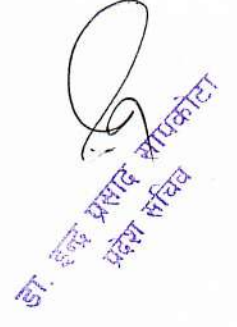 डा. इन्द्र प्रसाद सापकोटा
प्रदेश सचिव